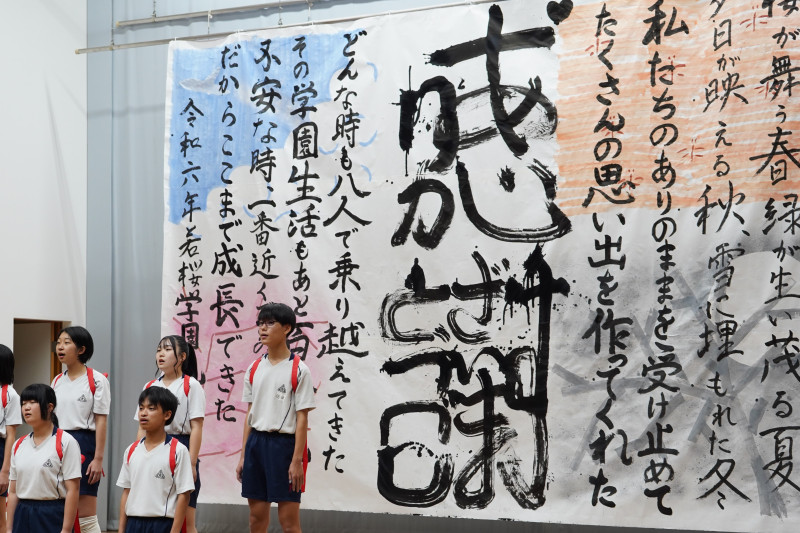 桜が舞う春緑が生い茂る夏
夕日が映える秋、雪に埋もれた冬
私たちのありのままを受け止めて
たくさんの思い出を作ってくれた
感謝
どんな時も八人で乗り越えてきた
その学園生活もあと
不安な時、一番近く
だからここまで成長できた
令和六年 若桜学園